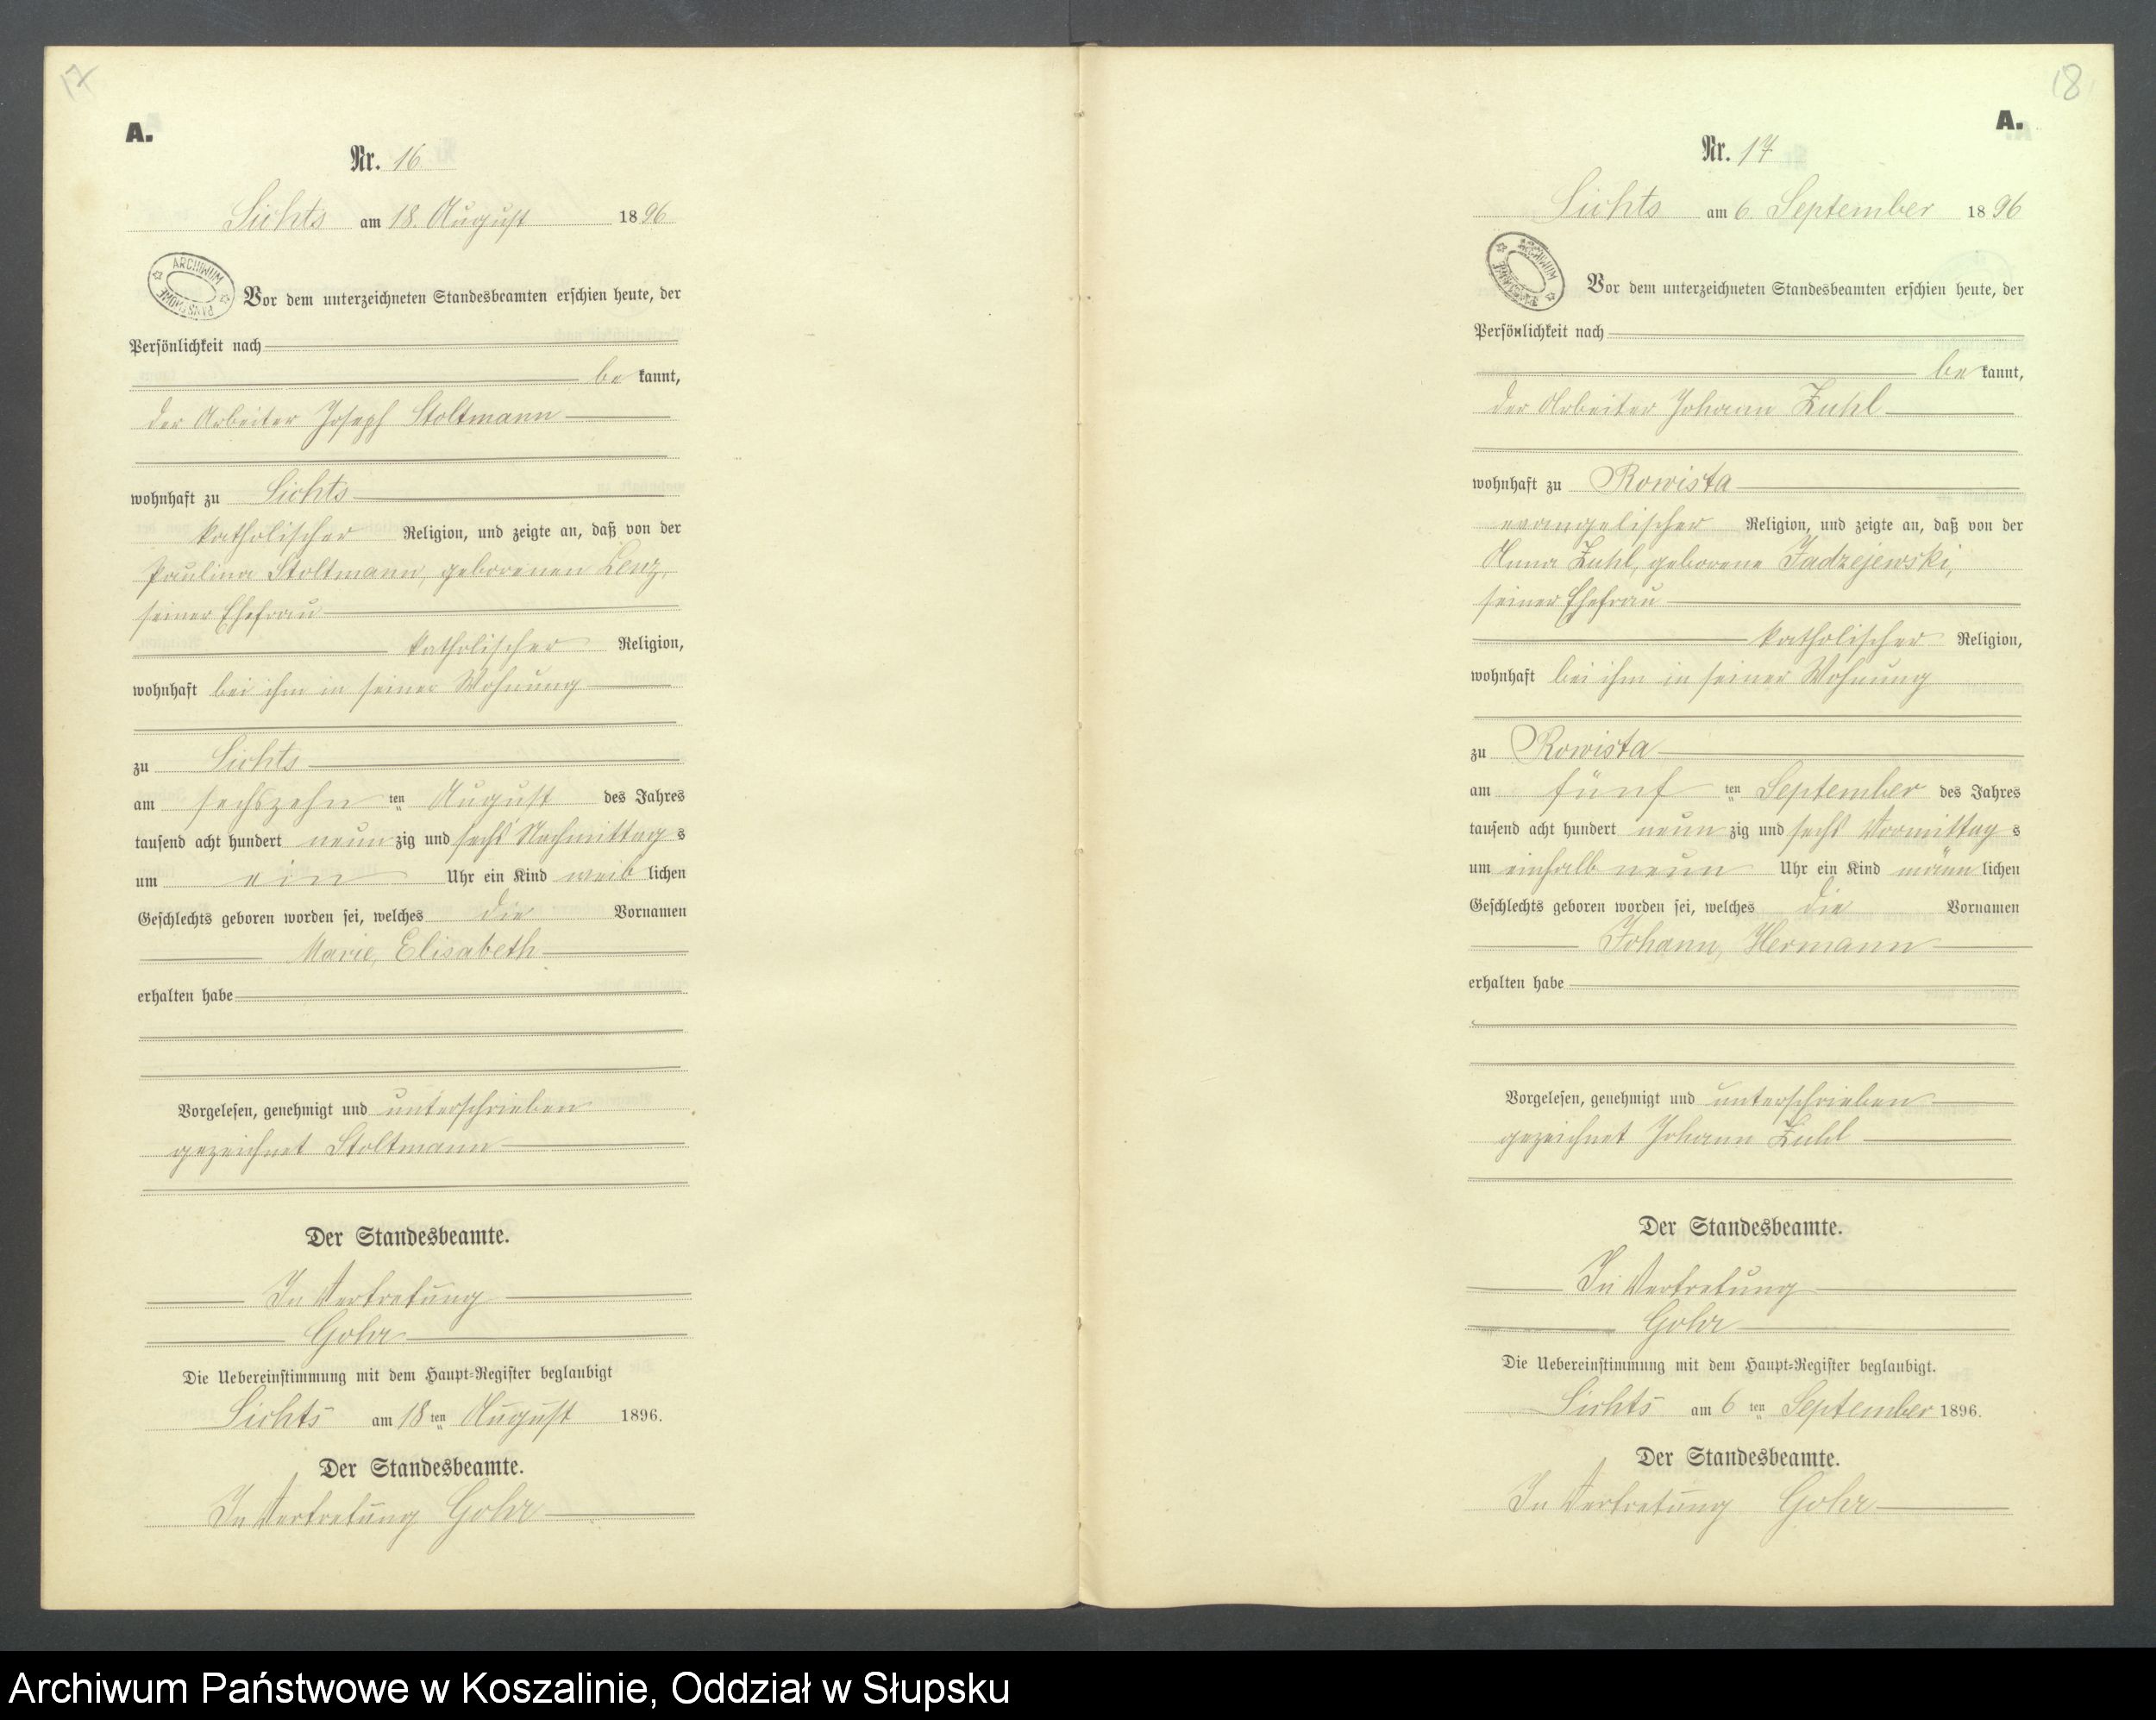 17
A.
Nr. 16
Lichts am 18. August 1896
ARCHIWUM PAŃSTWOWE
Vor dem unterzeichneten Standesbeamten erschien heute, der
Persönlichkeit nach
be kannt,
der Arbeiter Joseph Stoltmann
wohnhaft zu Lichts
katholischer Religion, und zeigte an, daß von der
Paulina Stoltmann, geborenen Lenz,
seiner Ehefrau
katholischer Religion,
wohnhaft bei ihm in seiner Wohnung
zu Lichts
am sechszehn ten August des Jahres
tausend acht hundert neun zig und sechs Nachmittag s
um ein Uhr ein Kind weib lichen
Geschlechts geboren worden sei, welches die Vornamen
Marie, Elisabeth
erhalten habe
Vorgelesen, genehmigt und unterschrieben
gezeichnet Stoltmann
Der Standesbeamte.
In Vertretung
Gohr
Die Uebereinstimmung mit dem Haupt-Register beglaubigt
Lichts am 18 ten August 1896.
Der Standesbeamte.
In Vertretung Gohr
18
A.
Nr. 17
Lichts am 6. September 1896
ARCHIWUM PAŃSTWOWE
Vor dem unterzeichneten Standesbeamten erschien heute, der
Persönlichkeit nach
be kannt,
der Arbeiter Johann Zuhl
wohnhaft zu Rowista
evangelischer Religion, und zeigte an, daß von der
Anna Zuhl, geborene Jadzejewski,
seiner Ehefrau
katholischer Religion,
wohnhaft bei ihm in seiner Wohnung
zu Rowista
am fünf ten September des Jahres
tausend acht hundert neun zig und sechs Vormittag s
um einhalb neun Uhr ein Kind männ lichen
Geschlechts geboren worden sei, welches die Vornamen
Johann, Hermann
erhalten habe
Vorgelesen, genehmigt und unterschrieben
gezeichnet Johann Zuhl
Der Standesbeamte.
In Vertretung
Gohr
Die Uebereinstimmung mit dem Haupt-Register beglaubigt.
Lichts am 6 ten September 1896.
Der Standesbeamte.
In Vertretung Gohr
Archiwum Państwowe w Koszalinie, Oddział w Słupsku